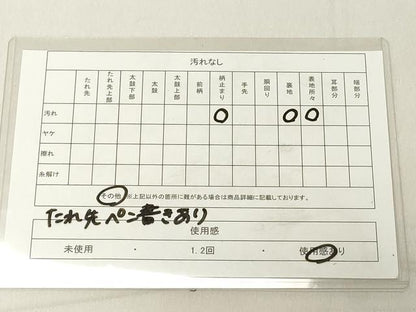 汚れなし
たれ先 たれ先上部 太鼓下部 太鼓 太鼓上部 前柄 柄止まり 手先 胴回り 裏地 表地所々 耳部分 端部分
汚れ ○ ○ ○
ヤケ
擦れ
糸解け
その他 ※上記以外の箇所に難がある場合は商品詳細に記載しております。
たれ先ペン書きあり
使用感
未使用 ・ 1.2回 ・ 使用感あり